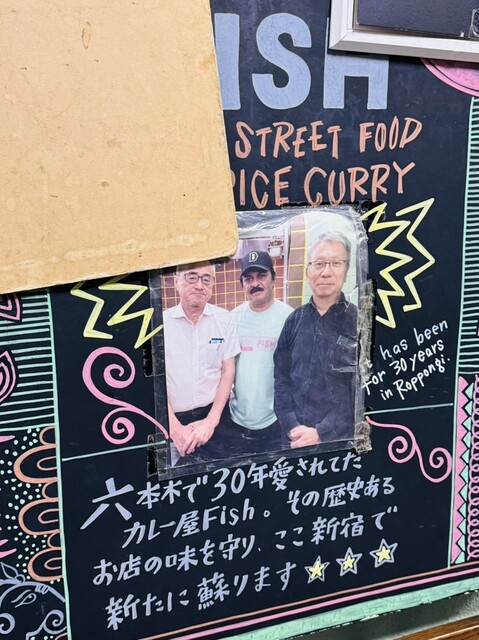 ISH
STREET FOOD
PICE CURRY
has been
for 30 years
in Roppongi.
六本木で30年愛されてた
カレー屋Fish。その歴史ある
お店の味を守り、ここ新宿で
新たに蘇ります